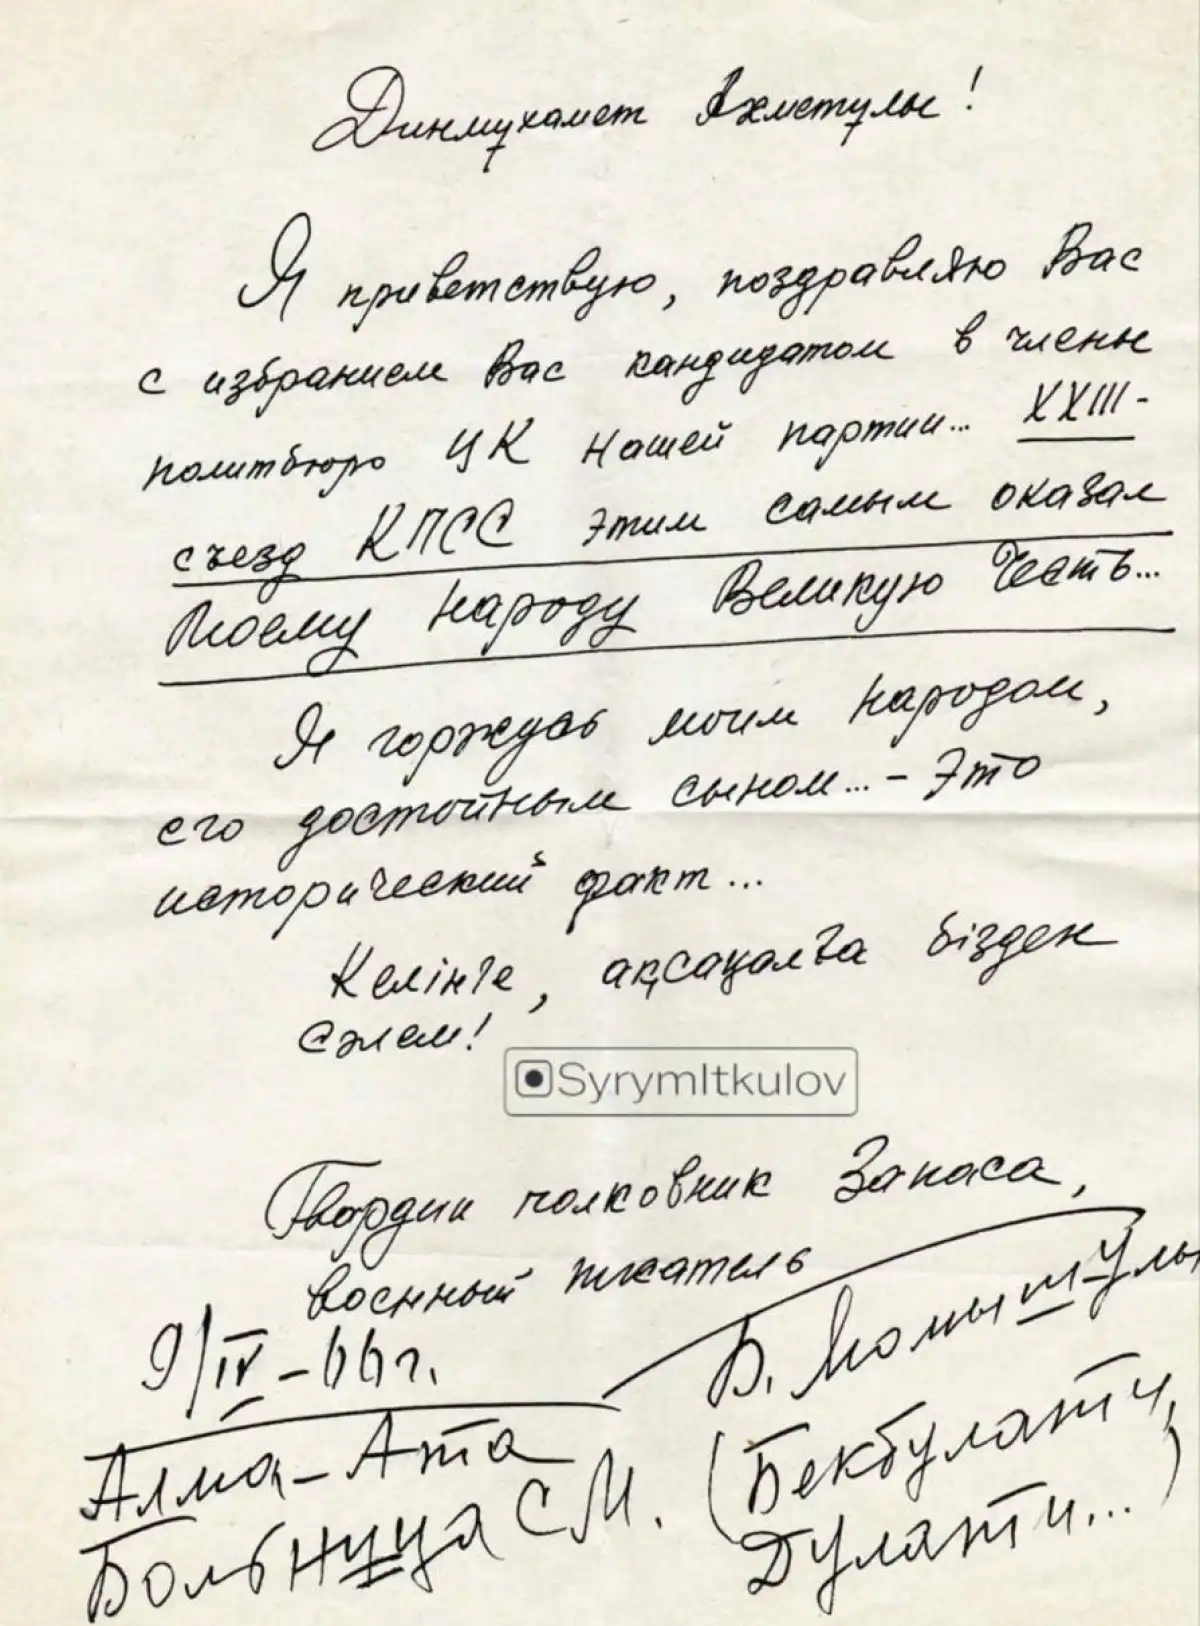 Динмұхамет Ахметұлы!
Я приветствую, поздравляю Вас
с избранием Вас кандидатом в члены
политбюро ЦК нашей партии... XXIII-
съезд КПСС этим самым оказал
моему народу Великую Честь...
Я горжусь моим народом,
его достойным сыном... - Это
исторический факт...
Келінге, ақсақалға бізден
сәлем!
SyrymItkulov
Гвардии полковник Запаса,
военный писатель
Б. Момышулы
9/IV-66г.
Алма-Ата
Больница СМ.
(Бекбулатти,
Дулатти...)